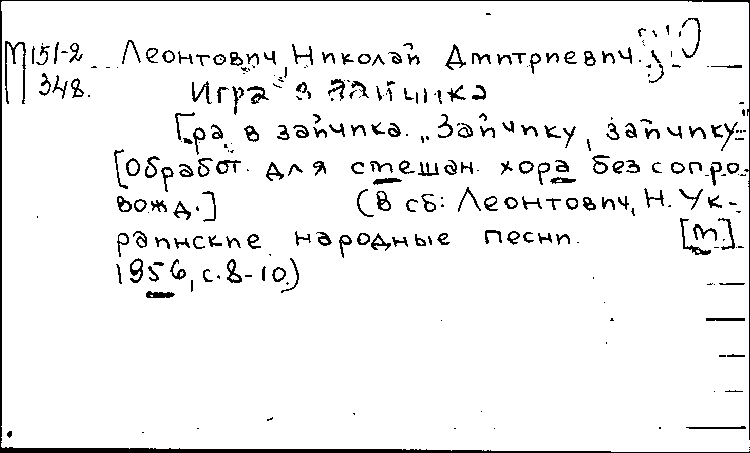 М151-2 Леонтович, Николай Дмитриевич.
348. Игра в зайчика
Гра в зайчика. „Зайчику, зайчику"
[Обработ. для смешан. хора без сопро-
вожд.] (В сб: Леонтович, Н. Ук-
раинские народные песни. [М.]
1956, с. 8-10.)